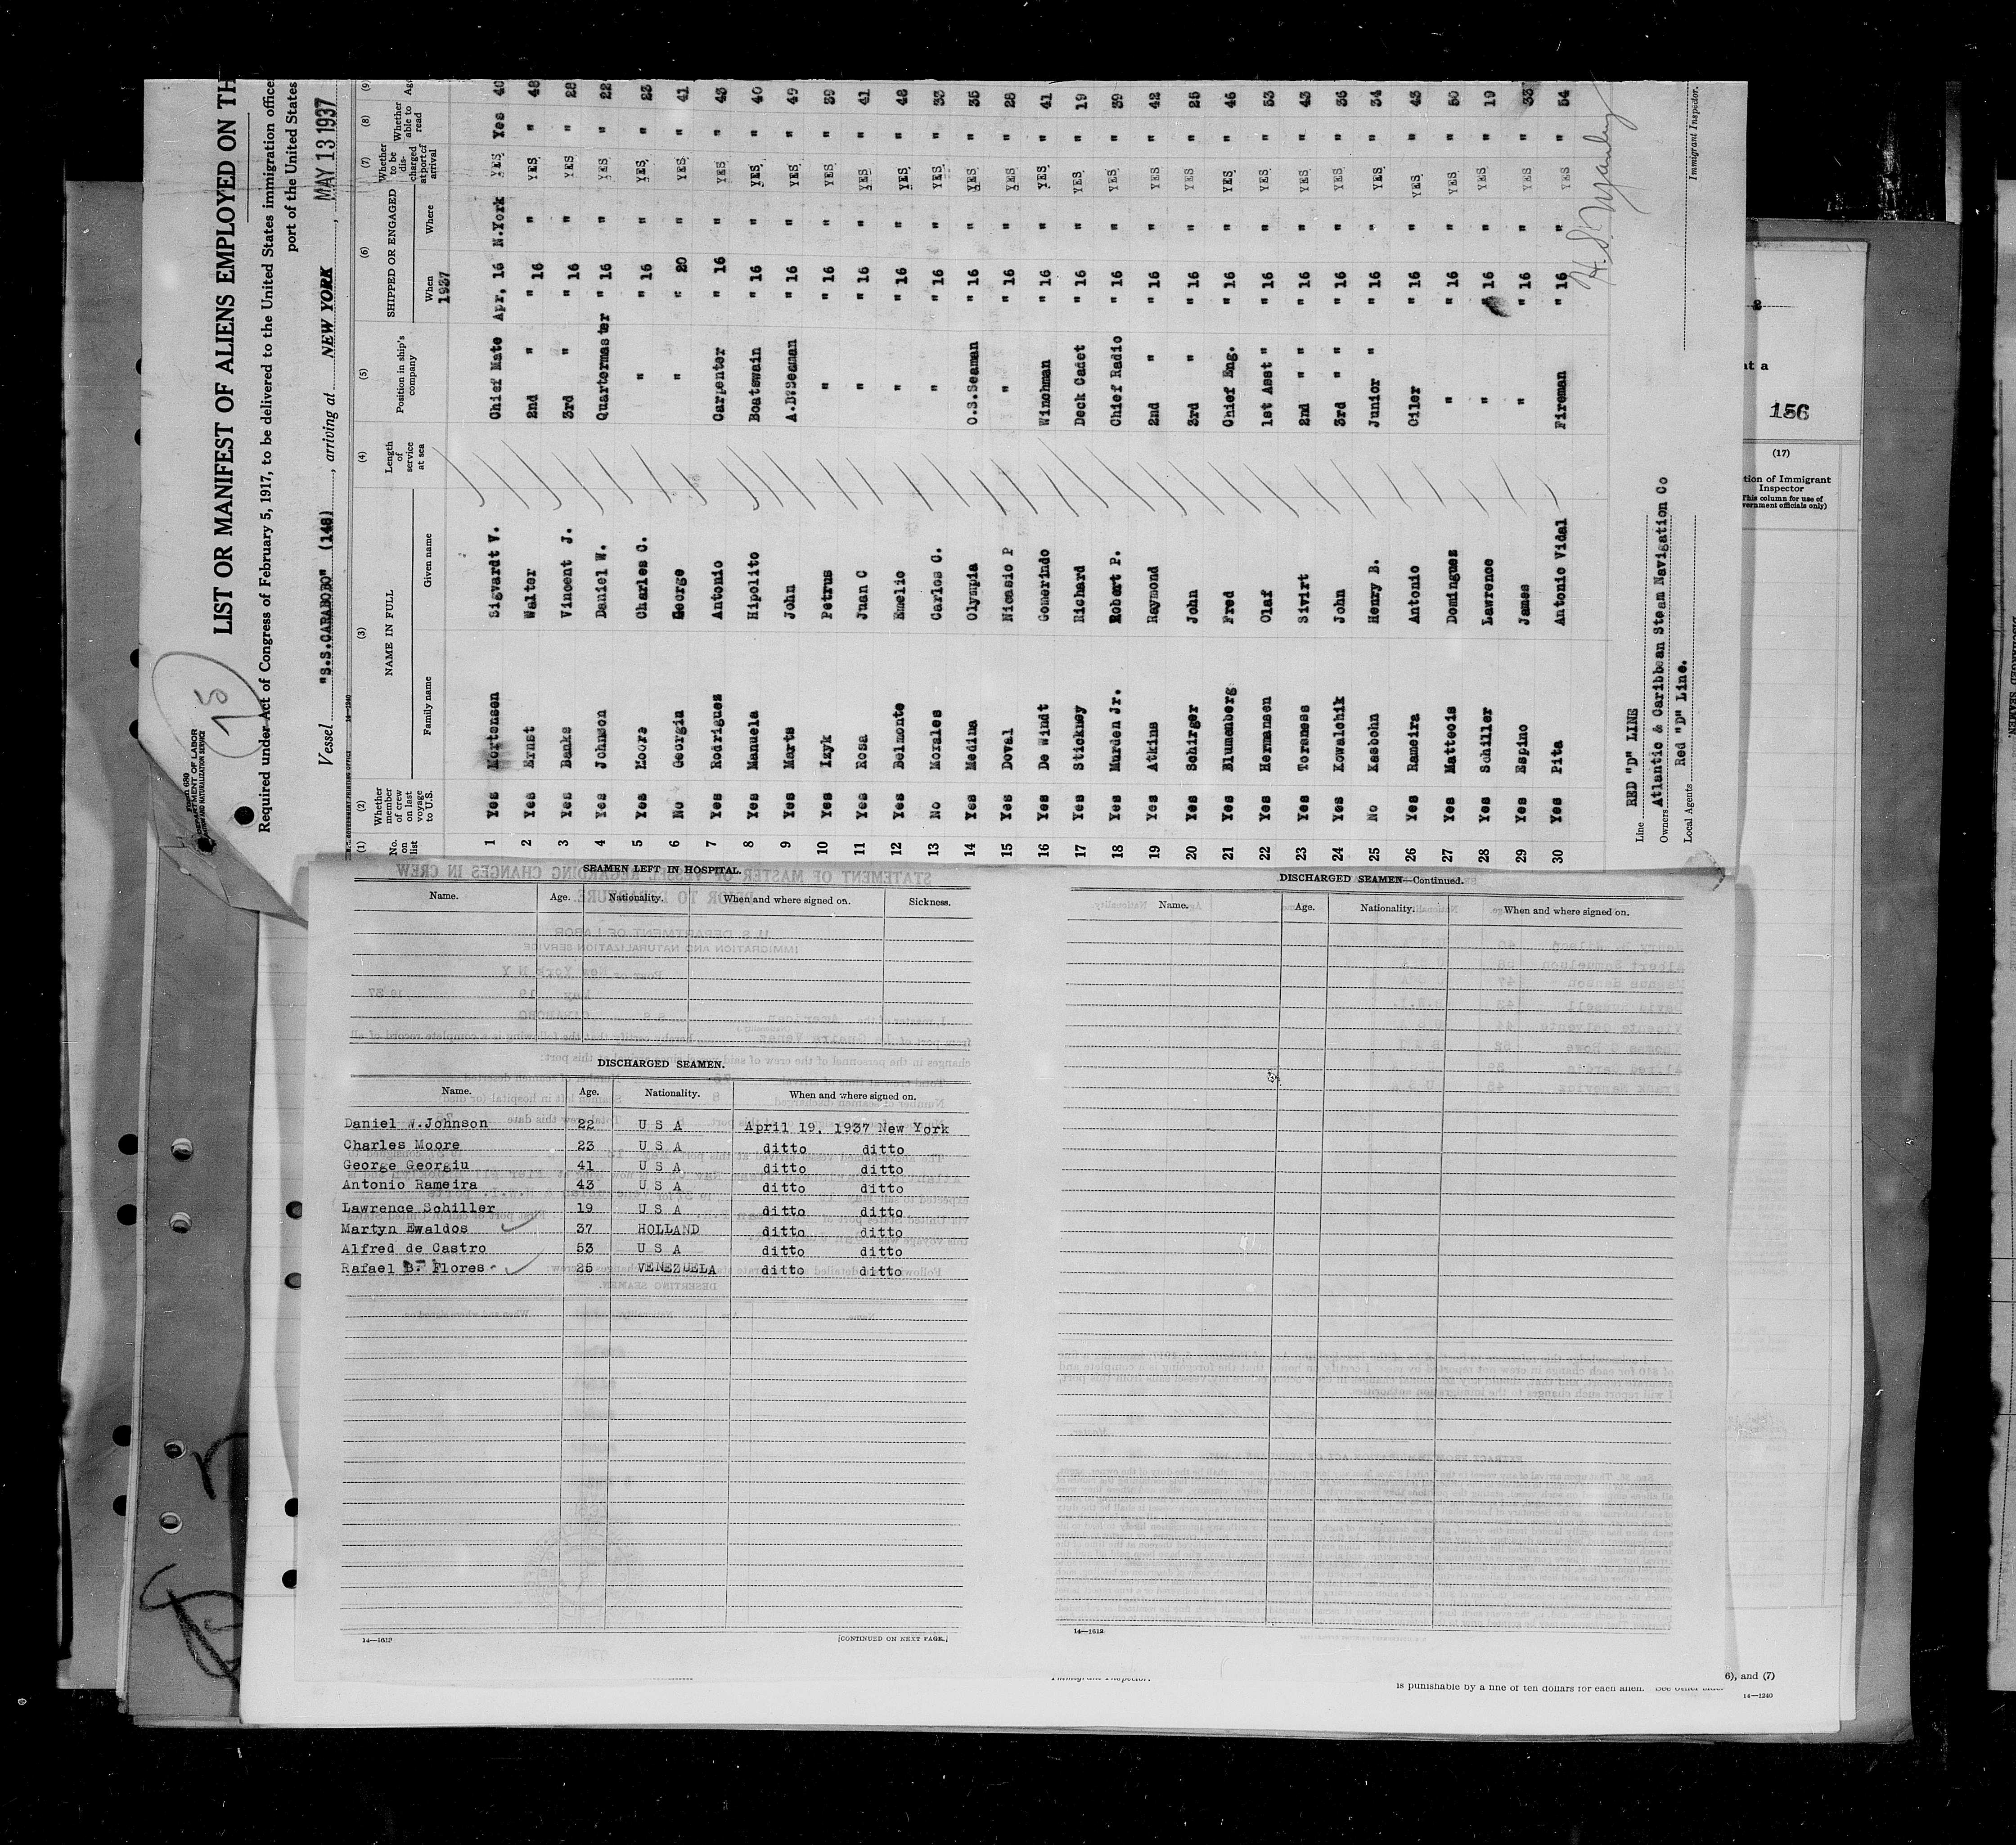 LIST OR MANIFEST OF ALIENS EMPLOYED ON TH
Required under Act of Congress of February 5, 1917, to be delivered to the United States immigration office
port of the United States
Vessel "S.S.CARABOBO" (148), arriving at NEW YORK, MAY 13 1937
(1) (2) (3) (4) (5) (6) (7) (8) (9)
No. on list Whether member of crew on last voyage to U.S. NAME IN FULL Family name Given name Length of service at sea Position in ship's company SHIPPED OR ENGAGED When Where Whether to be discharged at port of arrival Whether able to read Ag
1937
Yes 1 Mortensen Sigvardt V. Chief Mate Apr, 16 N.York YES Yes 40
Yes 2 Ernst Walter 2nd " " 16 " YES " 48
Yes 3 Banks Vincent J. 3rd " " 16 " YES " 28
Yes 4 Johnson Daniel W. Quartermaster " 16 " YES " 22
Yes 5 Moore Charles C. " " 16 " YES " 23
No 6 Georgia George " " 20 " YES " 41
Yes 7 Rodriguez Antonio Carpenter " 16 " YES " 43
Yes 8 Manuela Hipolito Boatswain " 16 " YES " 40
Yes 9 Marts John A.B.Seaman " 16 " YES " 49
Yes 10 Izyk Petrus " " 16 " YES " 39
Yes 11 Rosa Juan C " " 16 " YES " 41
Yes 12 Belmonte Emelio " " 16 " YES " 48
No 13 Morales Carlos C. " " 16 " YES " 33
Yes 14 Medina Olympia O.S.Seaman " 16 " YES " 35
Yes 15 Doval Nicasio P " " 16 " YES " 28
Yes 16 De Windt Gomerindo Winchman " 16 " YES " 41
Yes 17 Stickney Richard Deck Cadet " 16 " YES " 19
Yes 18 Murden Jr. Robert P. Chief Radio " 16 " YES " 39
Yes 19 Atkins Raymond 2nd " " 16 " YES " 42
Yes 20 Schirger John 3rd " " 16 " YES " 25
Yes 21 Blumenberg Fred Chief Eng. " 16 " YES " 46
Yes 22 Hermansen Olaf 1st Asst " " 16 " YES " 53
Yes 23 Torsness Sivirt 2nd " " " 16 " YES " 43
Yes 24 Kowalchik John 3rd " " " 16 " YES " 36
No 25 Kasbohn Henry B. Junior " " 16 " YES " 34
Yes 26 Rameira Antonio Oiler " 16 " YES " 43
Yes 27 Matteois Dominguez " " 16 " YES " 50
Yes 28 Schiller Lawrence " " 16 " YES " 19
Yes 29 Espino James " " 16 " YES " 33
Yes 30 Pita Antonio Vidal Fireman " 16 " YES " 54
Line RED "D" LINE
Owners Atlantic & Caribbean Steam Navigation Co
Local Agents Red "D" Line.
Immigrant Inspector.
156
(17)
tion of Immigrant
Inspector
This column for use of
vernment officials only)
SEAMEN LEFT IN HOSPITAL.
Name. Age. Nationality. When and where signed on. Sickness.
DISCHARGED SEAMEN.
Name. Age. Nationality. When and where signed on.
Daniel W.Johnson 22 U S A April 19, 1937 New York
Charles Moore 23 U S A ditto ditto
George Georgiu 41 U S A ditto ditto
Antonio Rameira 43 U S A ditto ditto
Lawrence Schiller 19 U S A ditto ditto
Martyn Ewaldos 37 HOLLAND ditto ditto
Alfred de Castro 53 U S A ditto ditto
Rafael B. Flores 25 VENEZUELA ditto ditto
14—1612 [CONTINUED ON NEXT PAGE.]
DISCHARGED SEAMEN—Continued.
Name. Age. Nationality. When and where signed on.
14—1612
6), and (7)
is punishable by a fine of ten dollars for each alien.
14—1240